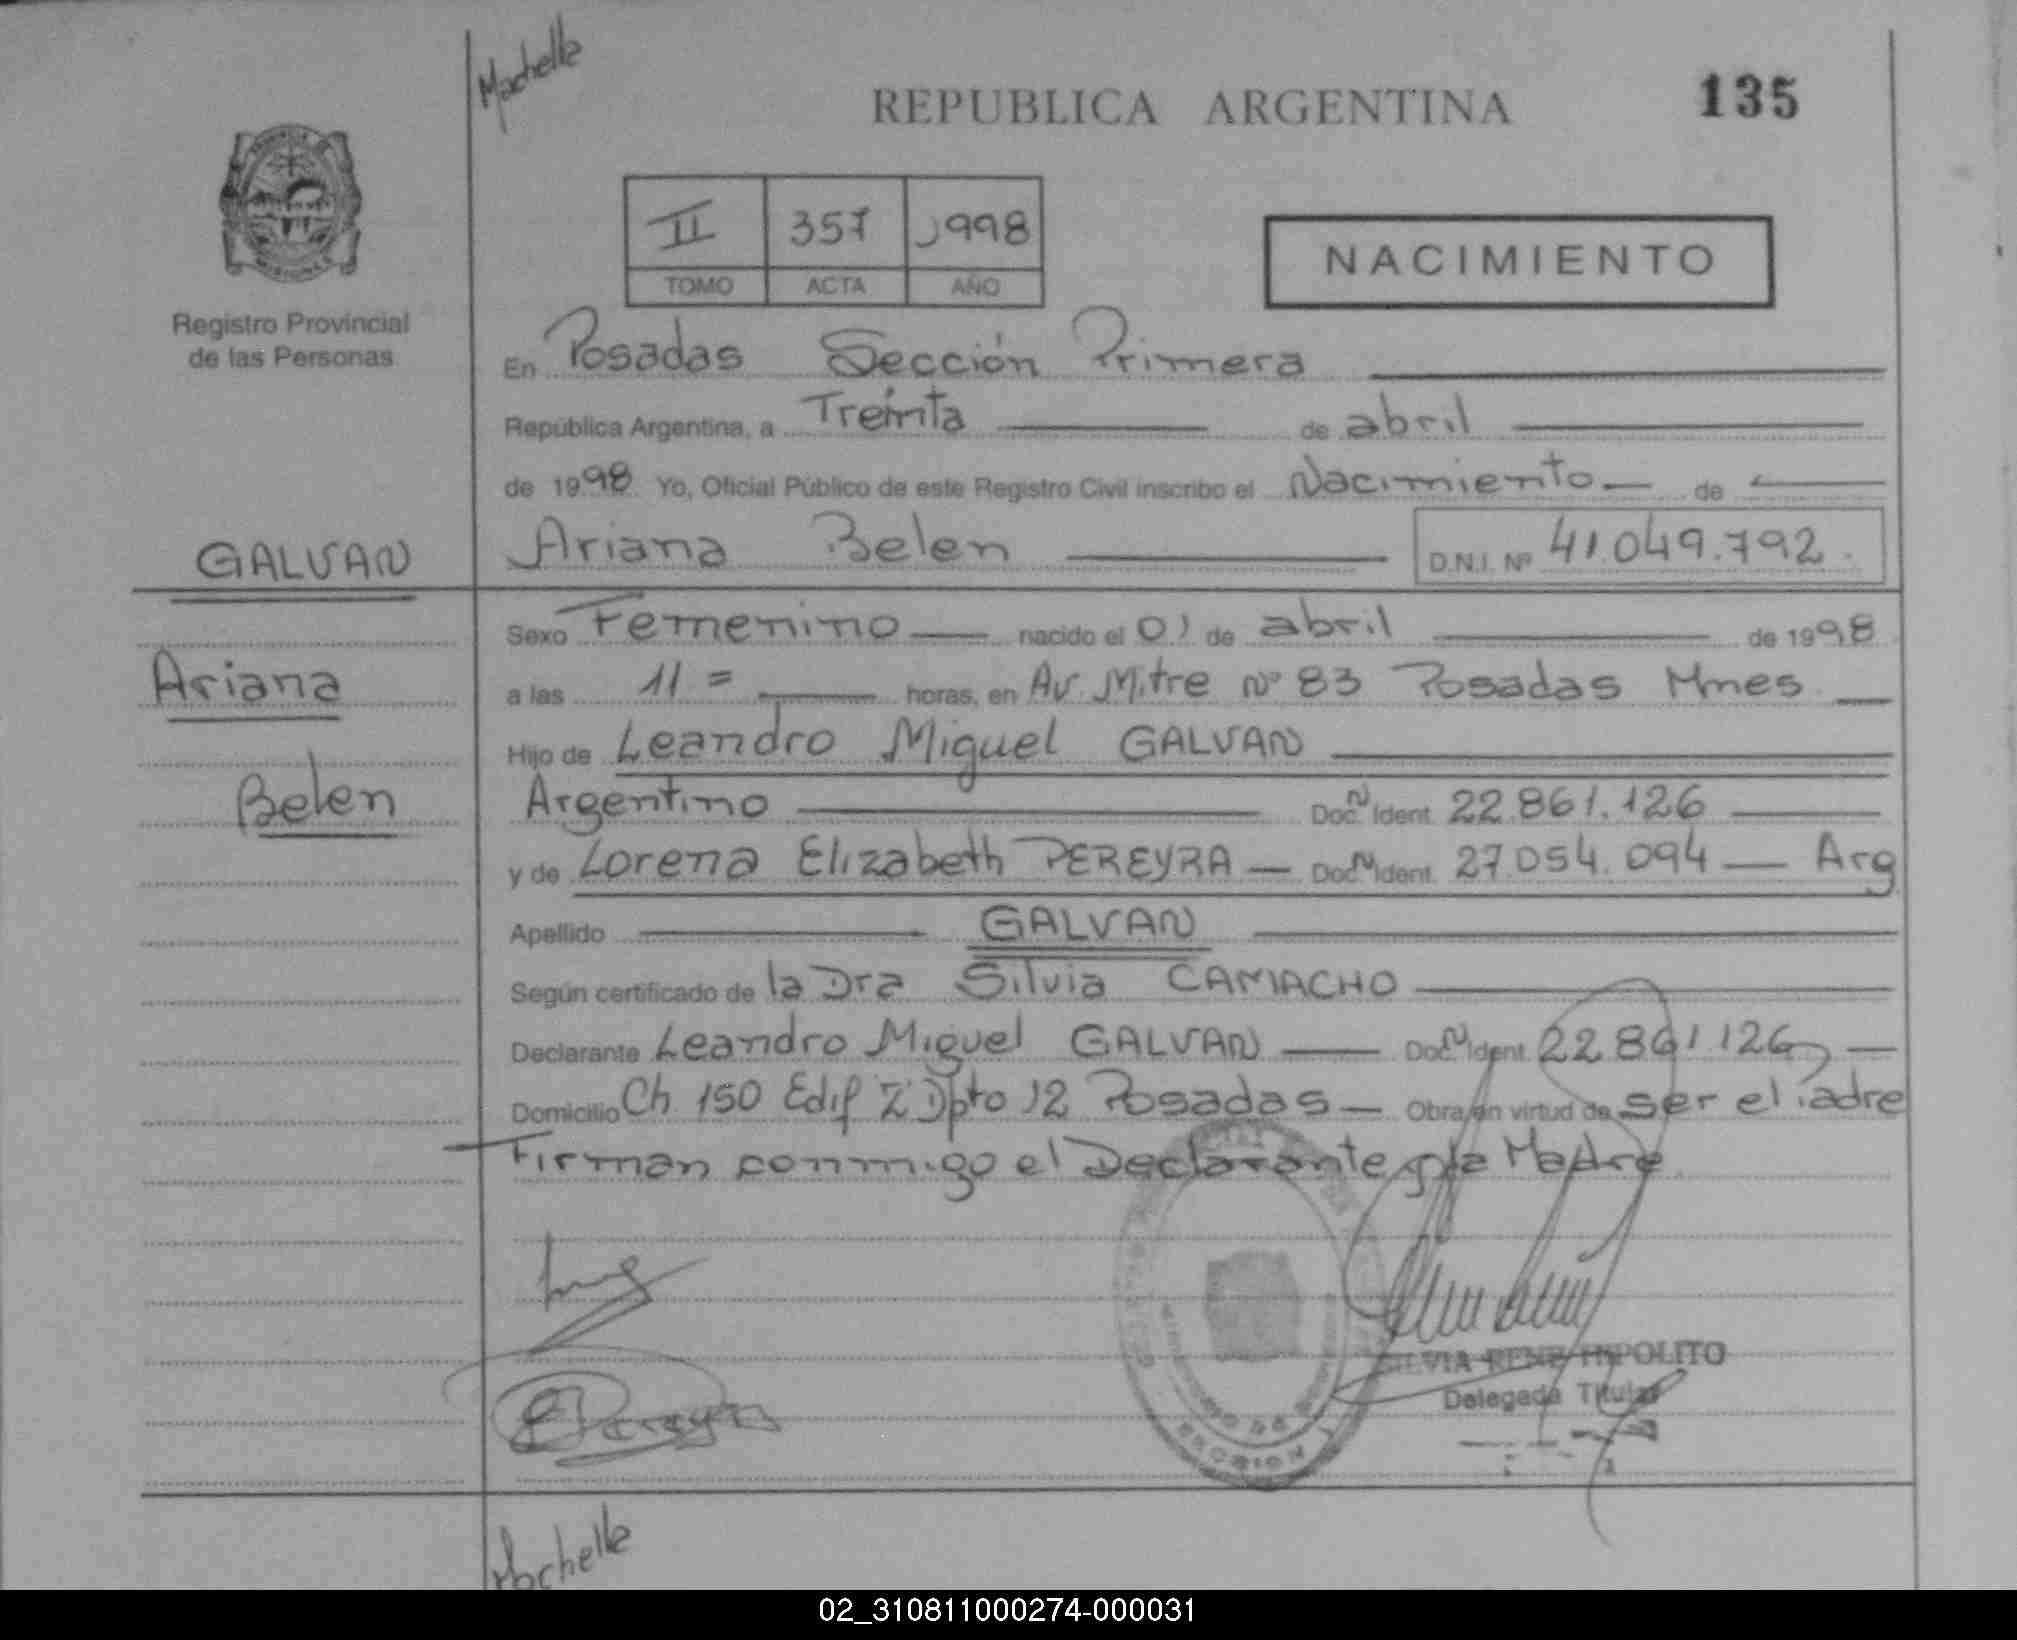 Machelle
REPUBLICA ARGENTINA
135
II 357 1998
TOMO ACTA AÑO
NACIMIENTO
MISIONES
Registro Provincial
de las Personas
En Posadas Sección Primera
República Argentina, a Treinta de abril
de 1998 Yo, Oficial Público de este Registro Civil inscribo el Nacimiento de
GALVAN
Ariana Belen D.N.I. Nº 41.049.792
Sexo Femenino nacido el 01 de abril de 1998
Ariana
a las 11 = horas, en Av. Mitre Nº 83 Posadas Mnes
Hijo de Leandro Miguel GALVAN
Belen
Argentino Doc. N Ident. 22.861.126
y de Lorena Elizabeth PEREYRA Doc. N Ident. 27.054.094 Arg
Apellido GALVAN
Según certificado de la Dra Silvia CAMACHO
Declarante Leandro Miguel GALVAN Doc. N Ident. 22.861.126
Domicilio Ch. 150 Edif Z Dpto 12 Posadas Obra en virtud de ser el Padre
Firman conmigo el Declarante y la Madre
E Pereyra
SILVIA RENE HIPOLITO
Delegada Titular
Machelle
02_310811000274-000031